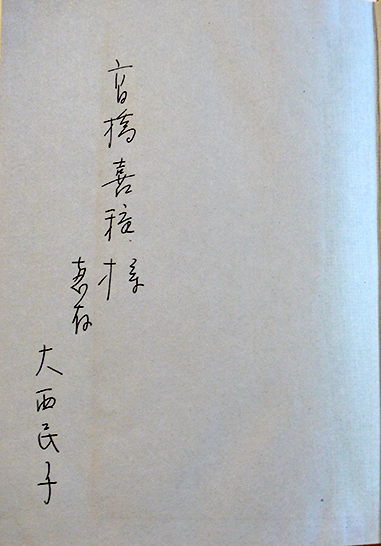 高橋喜穂様
恵存
大西民子